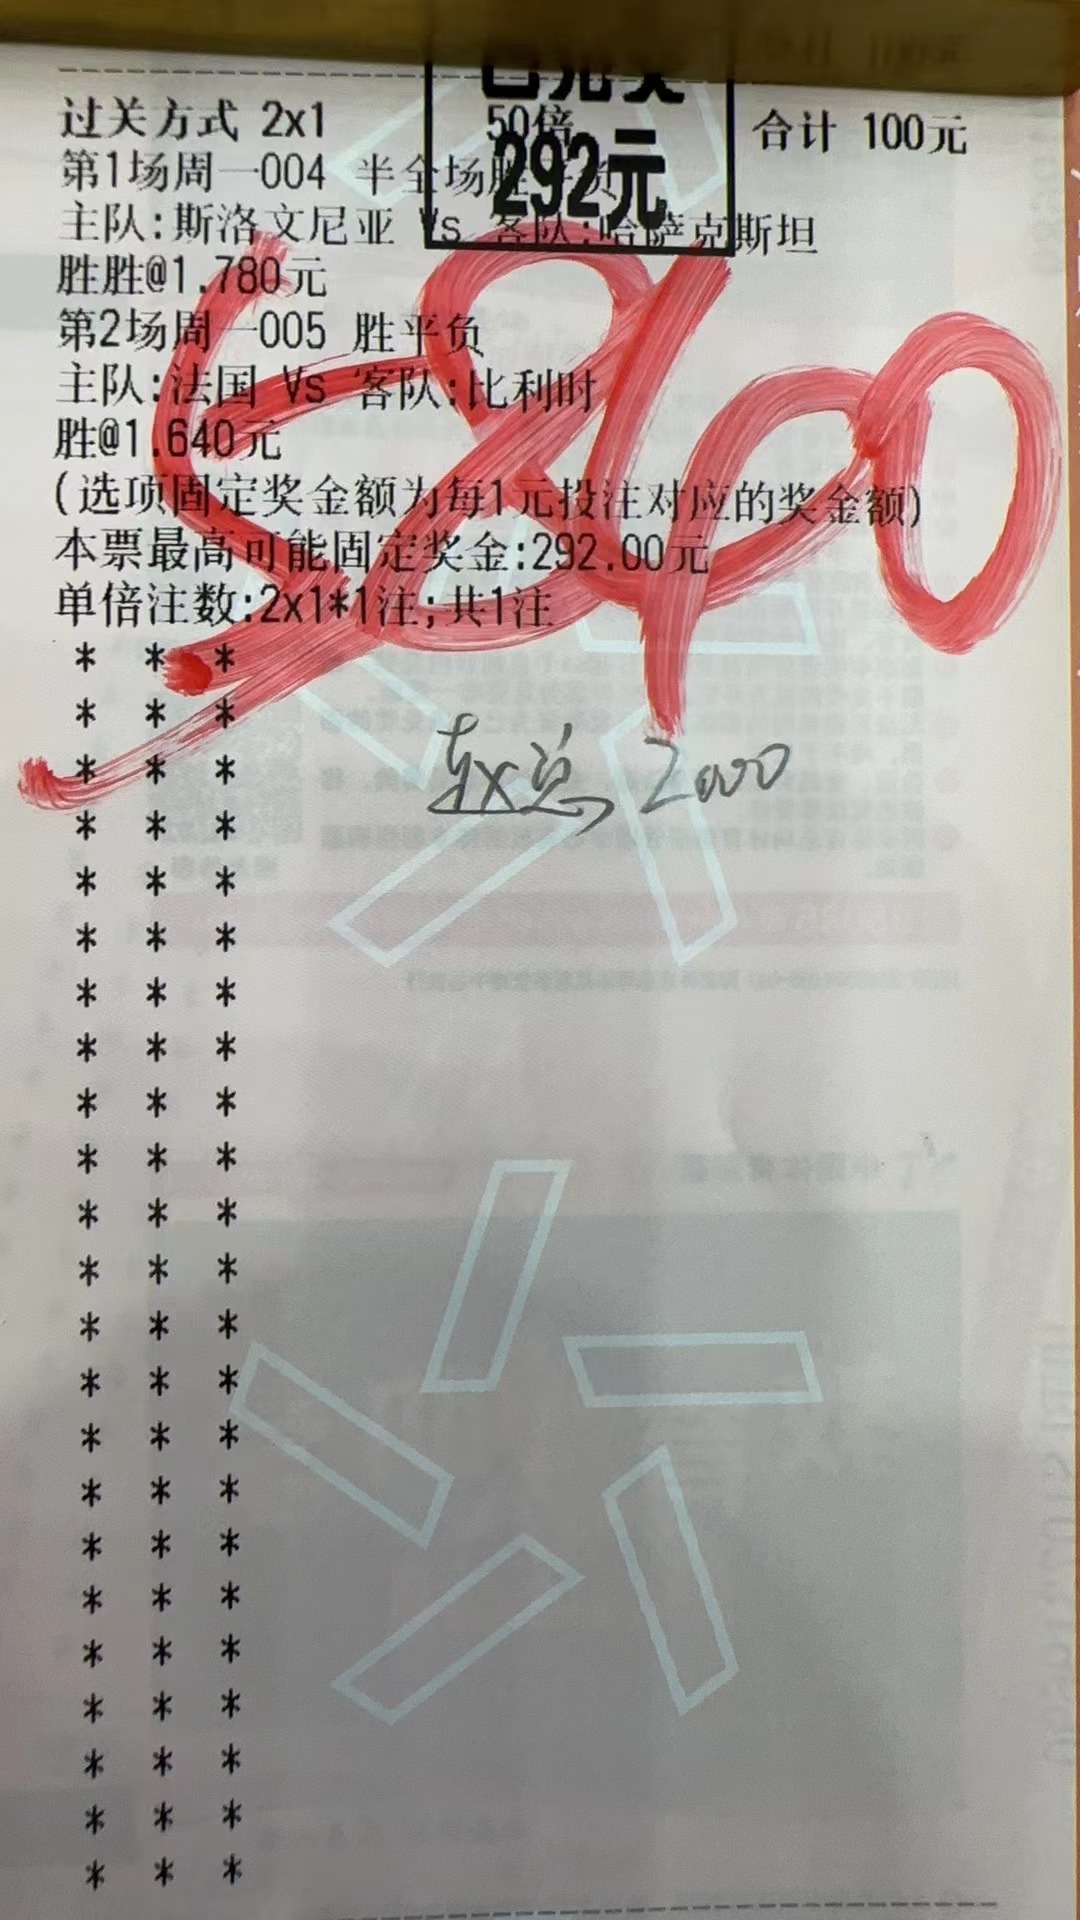 已兑奖
292元
过关方式 2x1 50倍 合计 100元
第1场周一004 半全场胜平负
主队:斯洛文尼亚 Vs 客队:哈萨克斯坦
胜胜@1.780元
第2场周一005 胜平负
主队:法国 Vs 客队:比利时
胜@1.640元
(选项固定奖金额为每1元投注对应的奖金额)
本票最高可能固定奖金:292.00元
单倍注数:2x1*1注;共1注
5840
赵总 2000
* * *
* * *
* * *
* * *
* * *
* * *
* * *
* * *
* * *
* * *
* * *
* * *
* * *
* * *
* * *
* * *
* * *
* * *
* * *
* * *
* * *
* * *
* * *